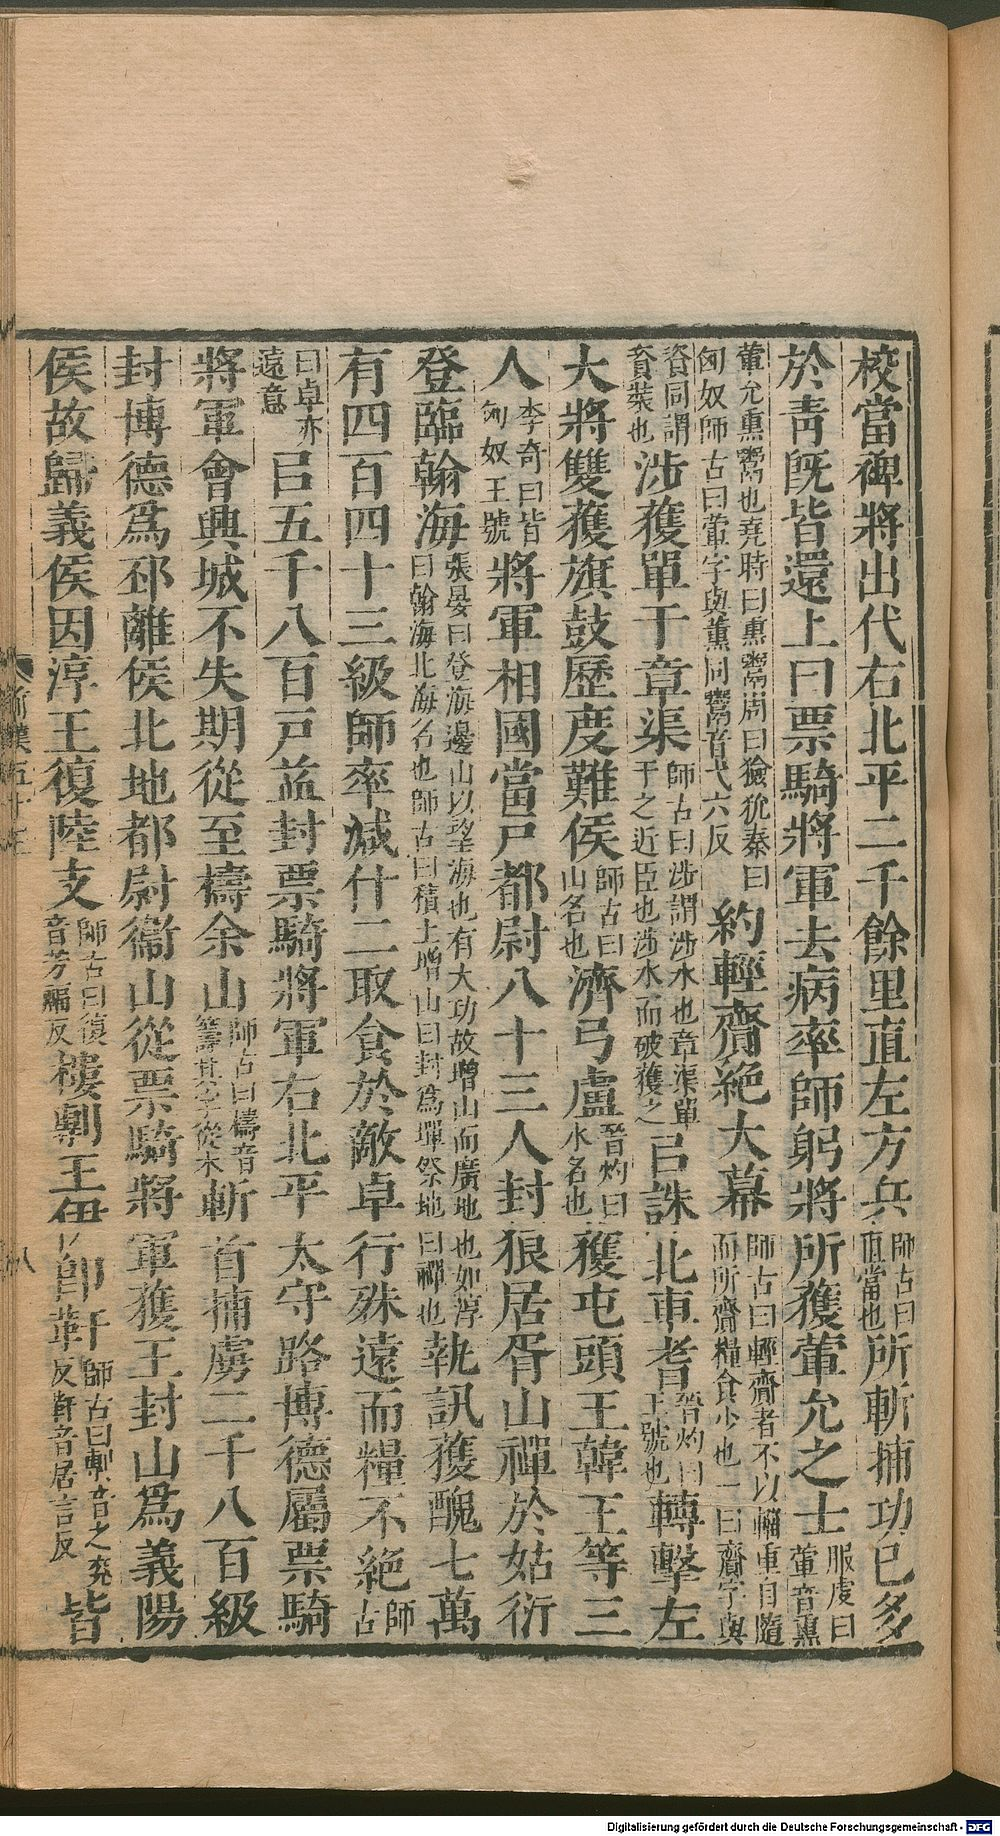 校當裨將出代右北平二千餘里直左方兵師古曰直當也所斬捕功已多
於青旣皆還上曰票騎將軍去病率師躬將所獲葷允之士服虔曰葷音熏
葷允熏鬻也堯時曰熏鬻周曰獫狁秦曰匈奴師古曰葷字與薰同鬻音弋六反約輕齎絶大幕師古曰輕齎者不以輜重自隨而所齎糧食少也一曰齎字與
資同謂資裝也涉獲單于章渠師古曰涉謂涉水也章渠單于之近臣也涉水而破獲之㠯誅北車耆晉灼曰王號也轉擊左
大將雙獲旗鼓歷度難侯師古曰山名也濟弓盧晉灼曰水名也獲屯頭王韓王等三
人李奇曰皆匈奴王號將軍相國當戶都尉八十三人封狼居胥山禪於姑衍
登臨翰海張晏曰登海邊山以望海也有大功故增山而廣地也如淳曰翰海北海名也師古曰積土增山曰封爲墠祭地曰禪也執訊獲醜七萬
有四百四十三級師率減什二取食於敵卓行殊遠而糧不絶師古
曰卓亦遠意㠯五千八百戶益封票騎將軍右北平太守路博德屬票騎
將軍會興城不失期從至檮余山師古曰檮音籌其字從木斬首捕虜二千八百級
封博德爲邳離侯北地都尉衞山從票騎將軍獲王封山爲義陽
侯故歸義侯因淳王復陸支師古曰復音芳福反樓剸王伊即靬師古曰剸音之兖反靬音居言反皆
八
Digitalisierung gefördert durch die Deutsche Forschungsgemeinschaft - DFG